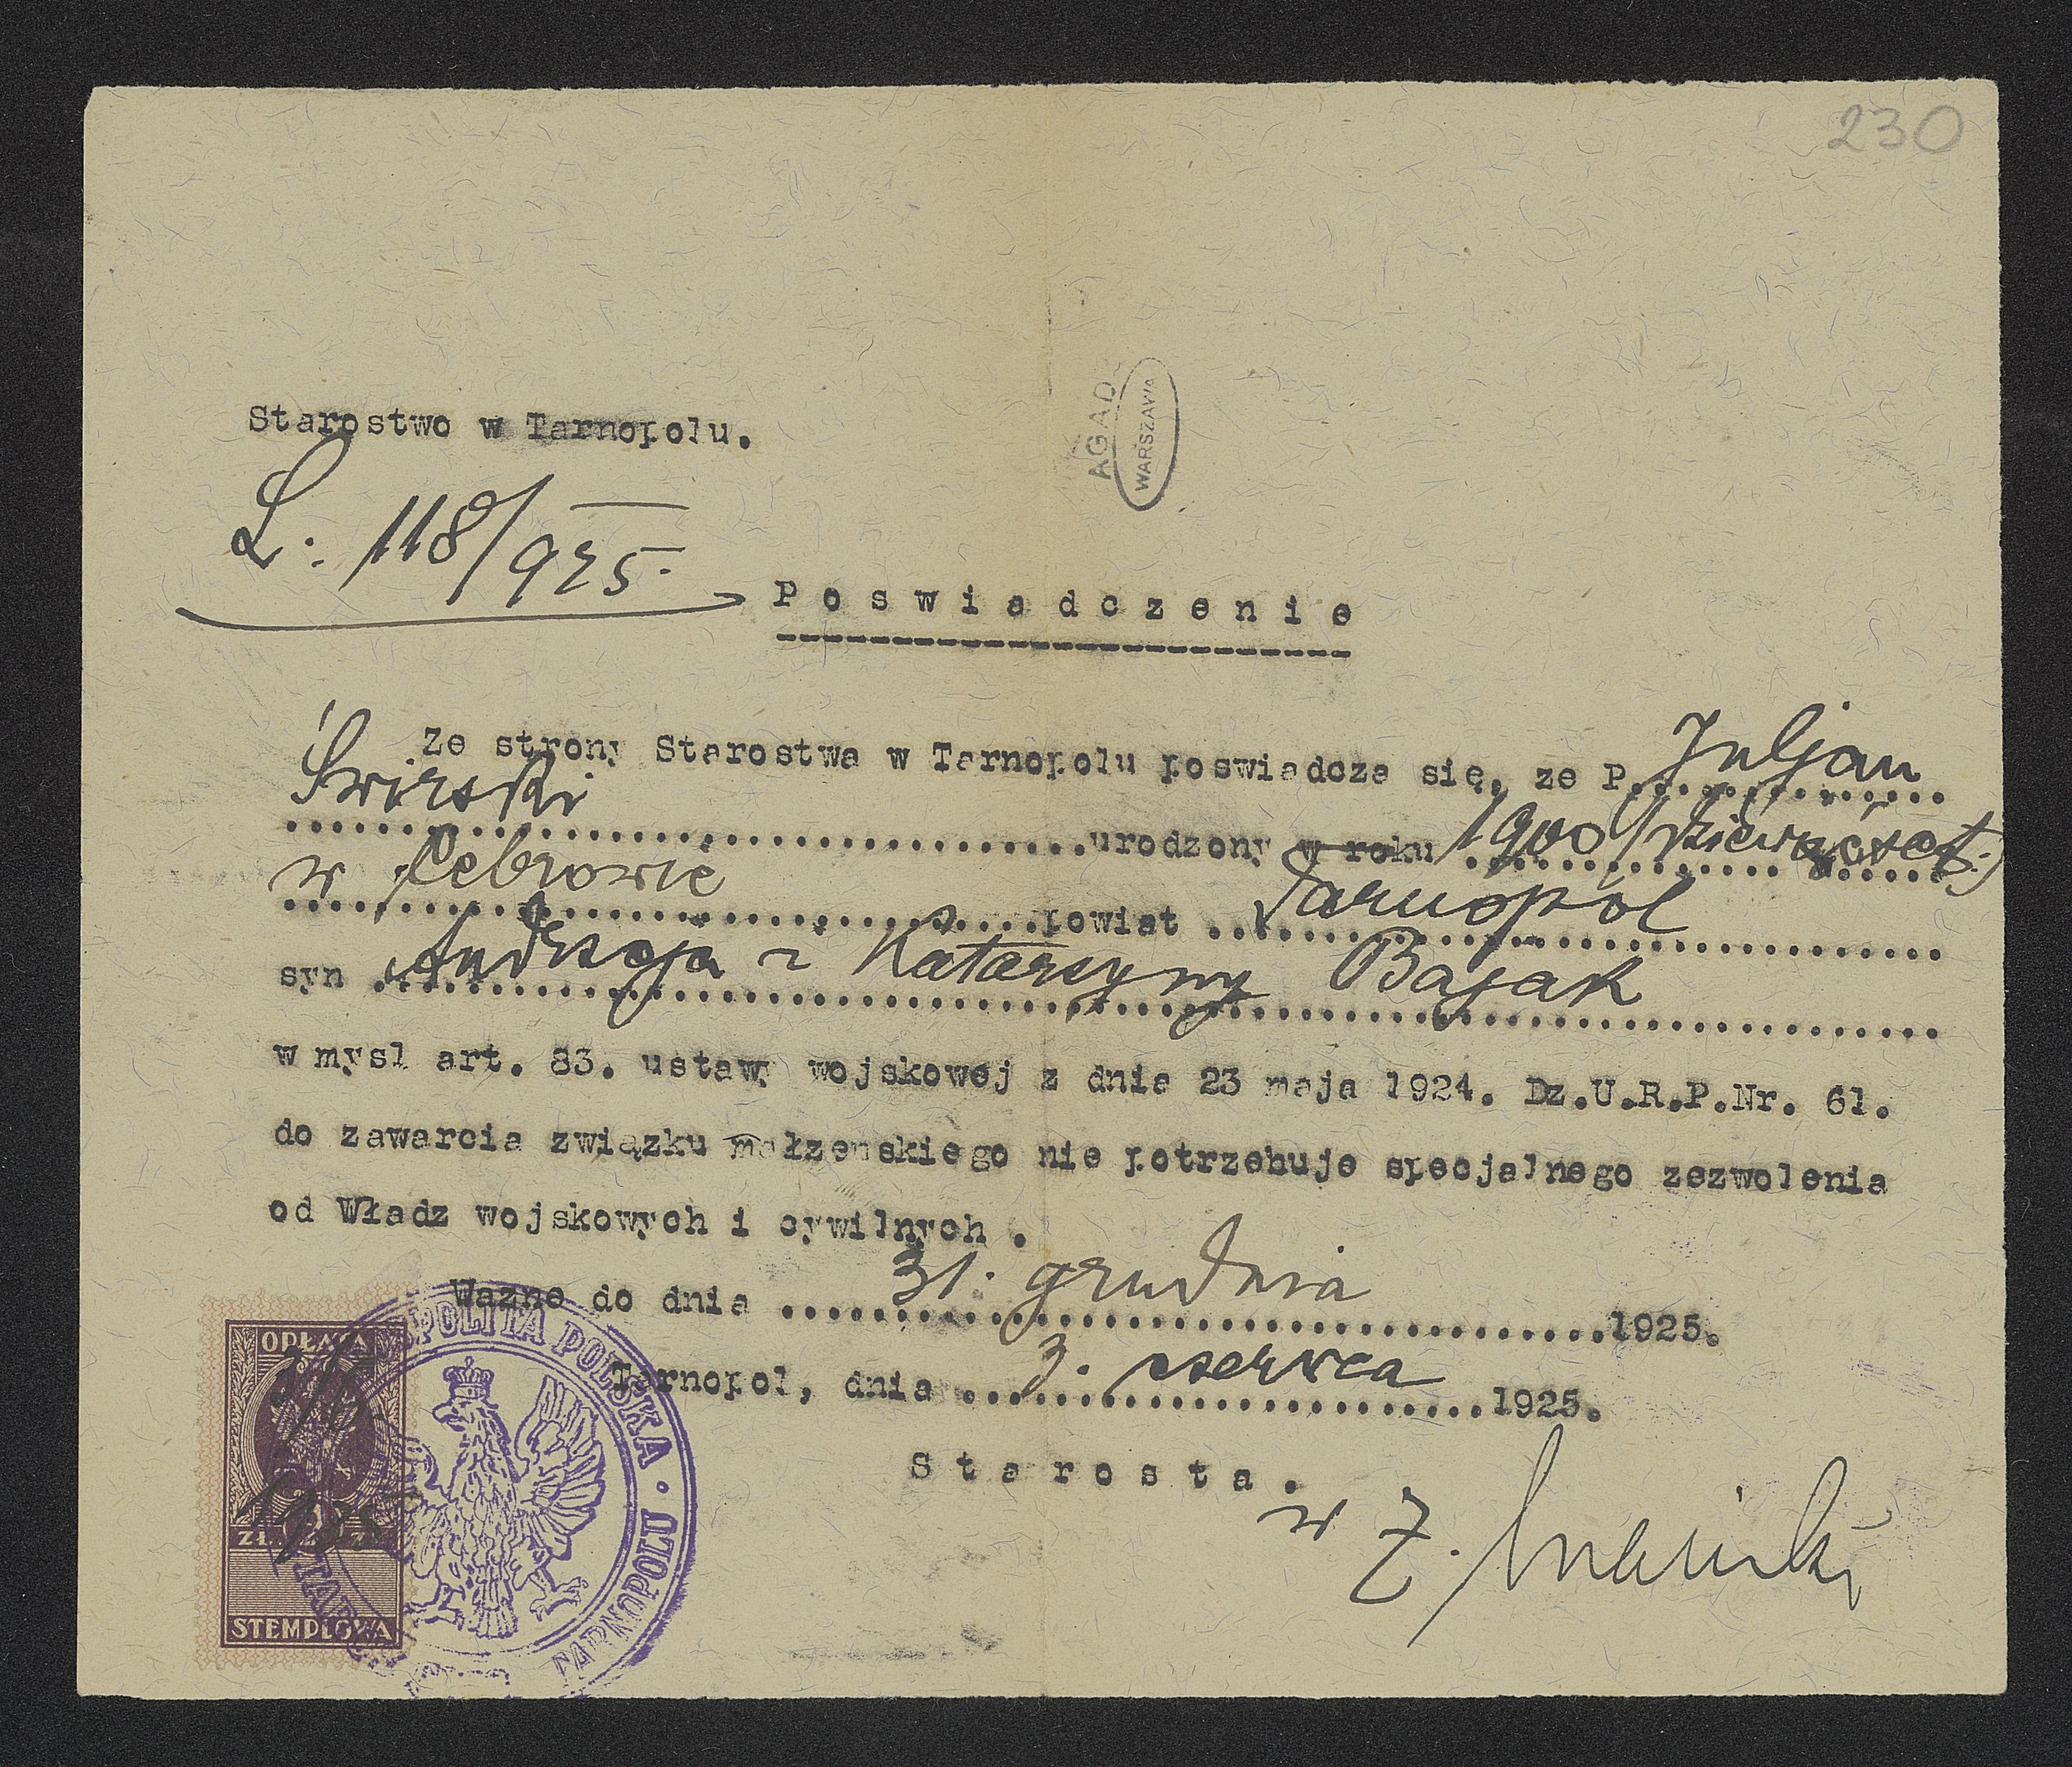 230
Starostwo w Tarnopolu.
AGAD
WARSZAWA
L: 118/925.
Poswiadczenie
Ze strony Starostwa w Tarnopolu poswiadcza się, ze P. Juljan
Świrski
urodzony w roku 1900 /dziewięćset/
w Cebrowie powiat Tarnopol
syn Andrzeja i Katarzyny Bajak
w mysl art. 83. ustawy wojskowej z dnia 23 maja 1924. Dz.U.R.P.Nr. 61.
do zawarcia związku małzenskiego nie potrzebuje specjalnego zezwolenia
od Władz wojskowych i cywilnych .
Wazne do dnia 31. grudnia 1925.
Tarnopol, dnia 3. czerwca 1925.
Starosta.
w Z.
OPŁATA
ZŁ. ZŁ.
STEMPLOWA
POLITA POLSKA · TARNOPOLU